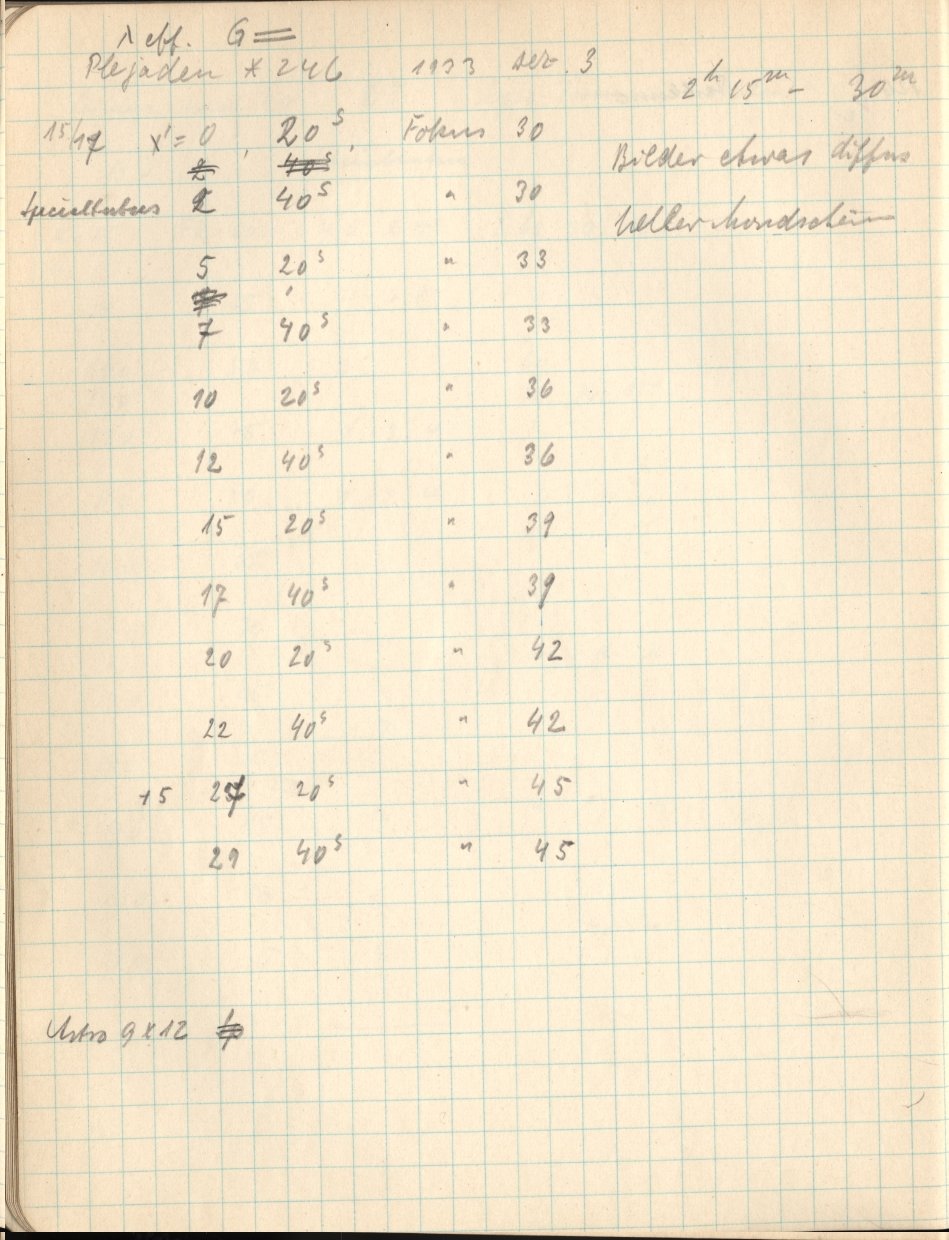 λ eff. G =
Plejaden * 246 1933 Dez. 3
2ʰ 15ᵐ - 30ᵐ
15/17 x' = 0, 20ˢ, Fokus 30
Bilder etwas diffus
2 40ˢ
2 40ˢ " 30
heller Mondschein
5 20ˢ " 33
7 40ˢ " 33
10 20ˢ " 36
12 40ˢ " 36
15 20ˢ " 39
17 40ˢ " 39
20 20ˢ " 42
22 40ˢ " 42
+5 27 20ˢ " 45
29 40ˢ " 45
Astro 9 x 12